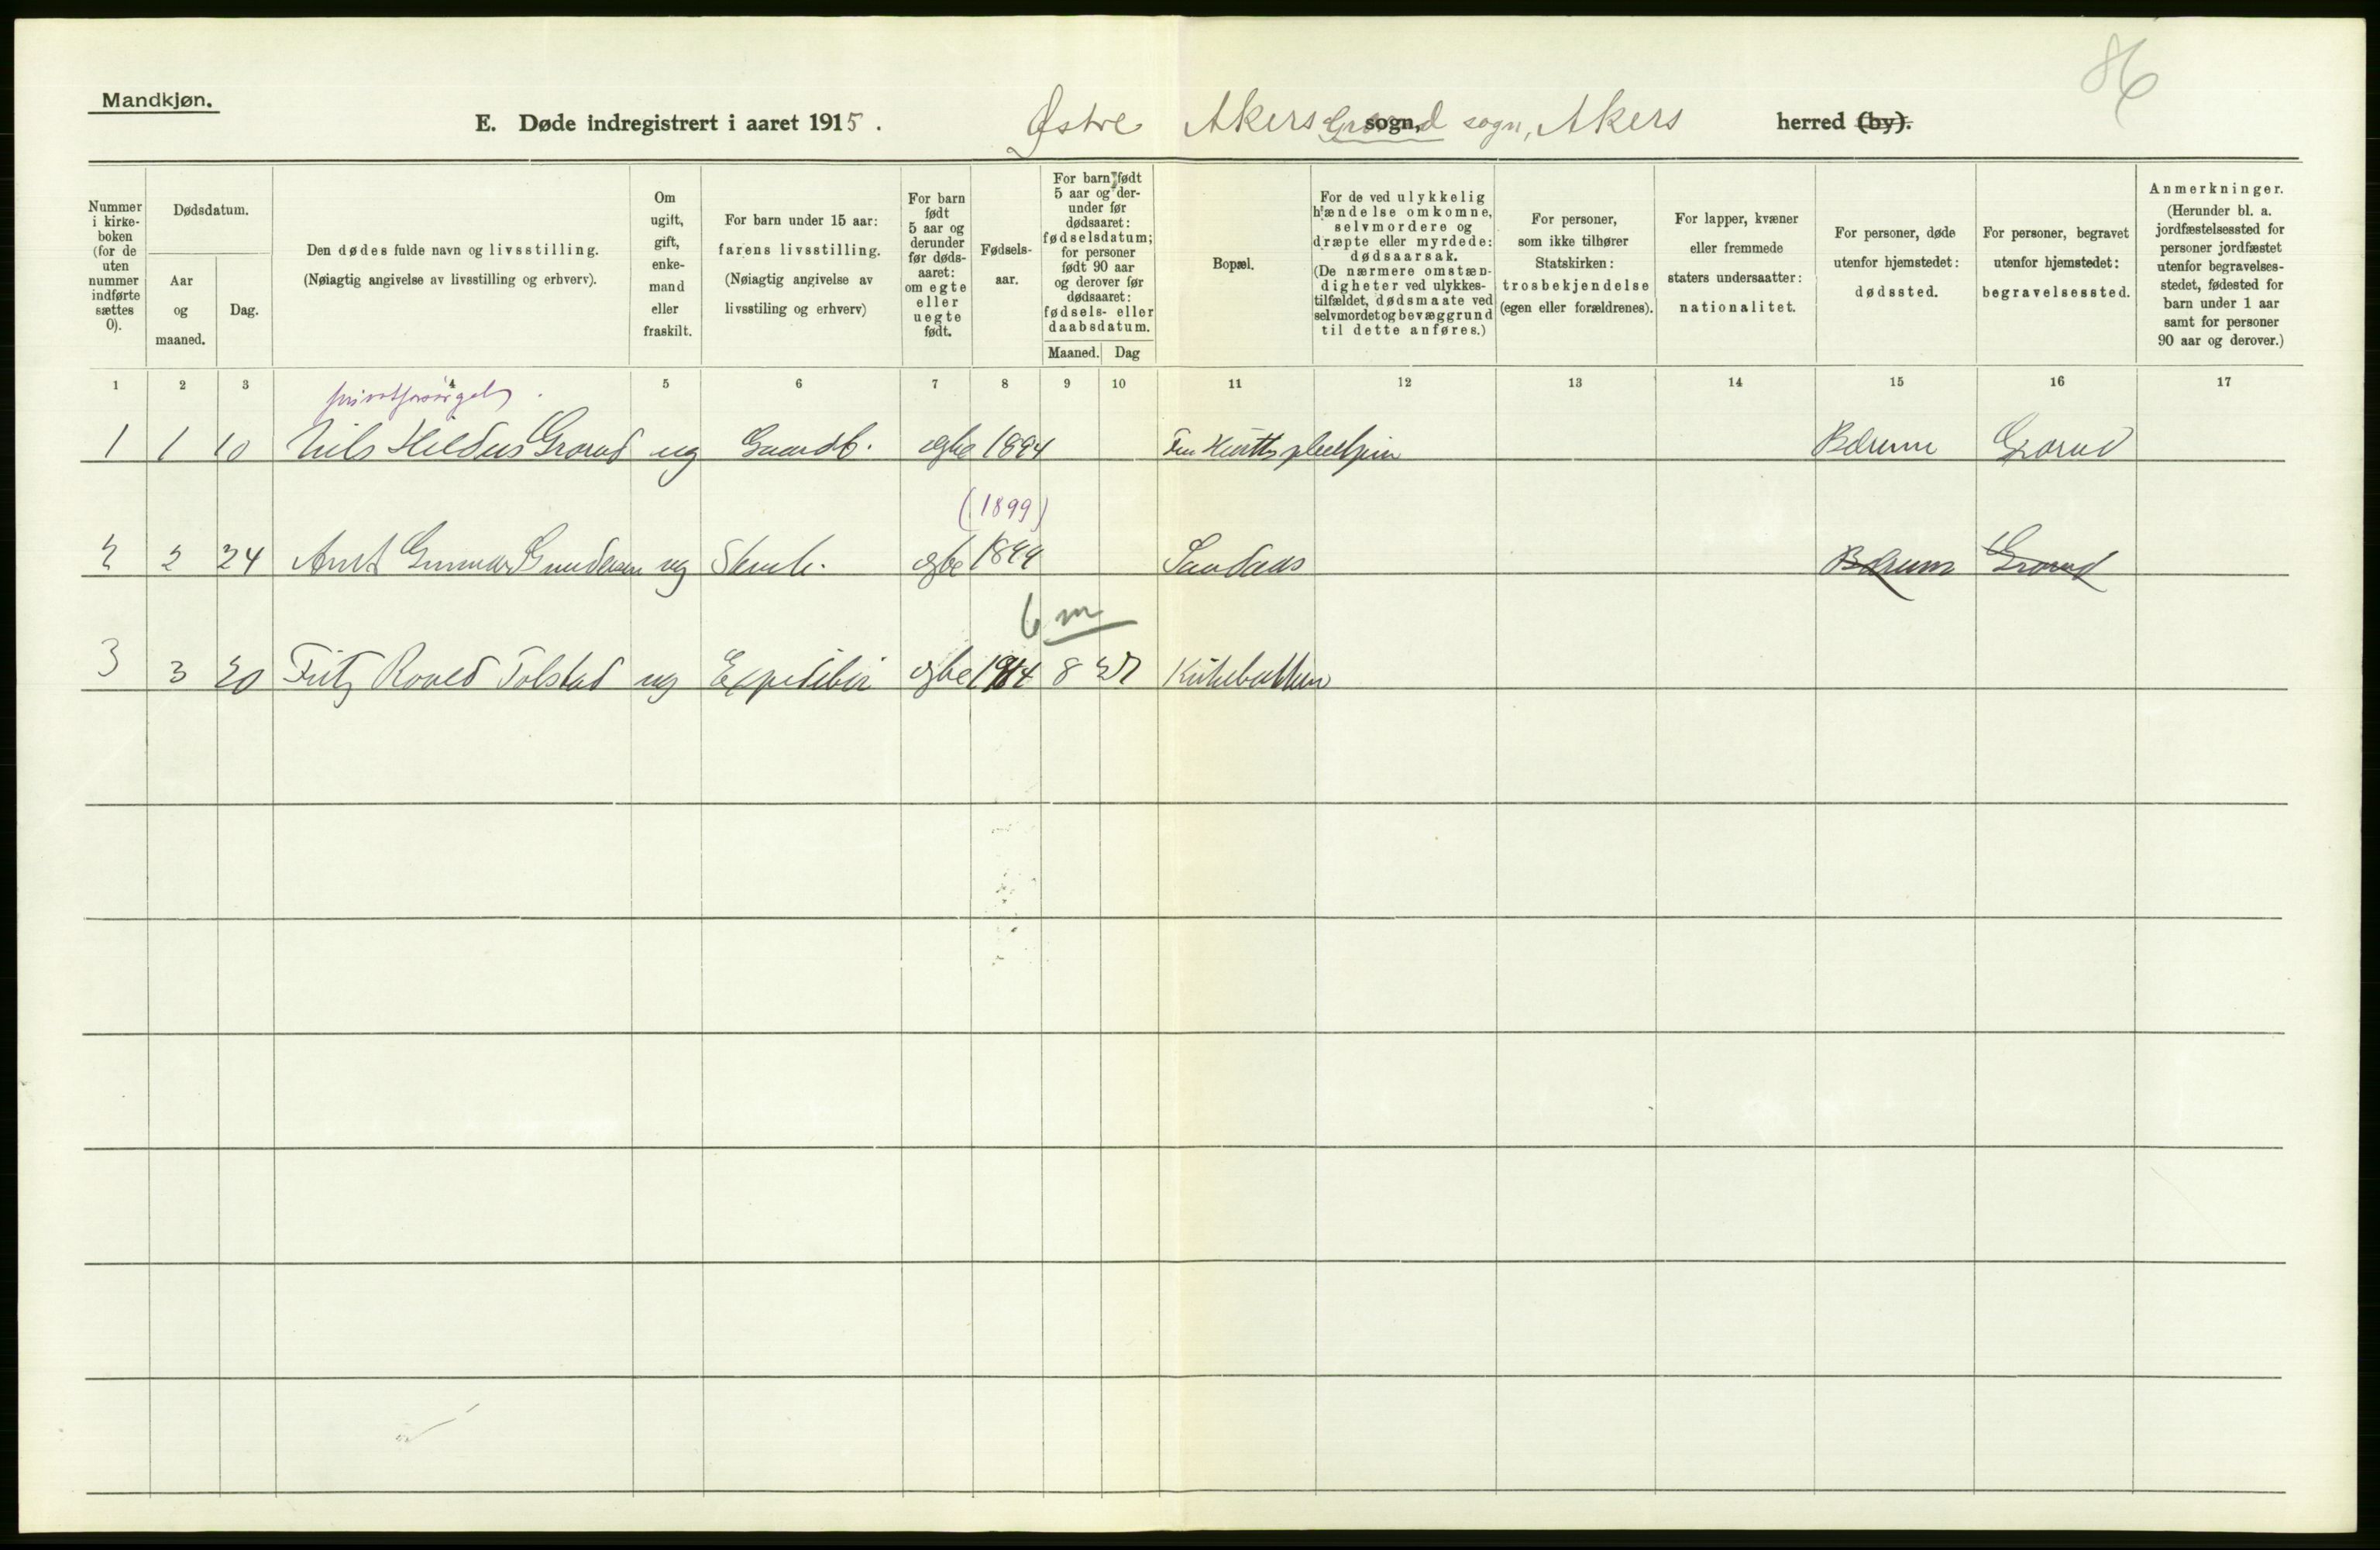 86
Mandkjøn.
E. Døde indregistrert i aaret 1915. Østre Akers Grorud sogn, sogn, Akers herred (by).
Nummer i kirke-boken (for de uten nummer indførte sættes 0).
Dødsdatum.
Aar og maaned.
Dag.
Den dødes fulde navn og livsstilling.
(Nøiagtig angivelse av livsstilling og erhverv).
Om ugift, gift, enke-mand eller fraskilt.
For barn under 15 aar: farens livsstilling.
(Nøiagtig angivelse av livsstiling og erhverv)
For barn født 5 aar og derunder før døds-aaret: om egte eller uegte født.
Fødsels-aar.
For barn født 5 aar og der-under før dødsaaret: fødselsdatum; for personer født 90 aar og derover før dødsaaret: fødsels- eller daabsdatum.
Maaned.
Dag
Bopæl.
For de ved ulykkelig hændelse omkomne, selvmordere og dræpte eller myrdede: dødsaarsak.
(De nærmere omstæn-digheter ved ulykkes-tilfældet, dødsmaate ved selvmordet og bevæggrund til dette anføres.)
For personer, som ikke tilhører Statskirken: trosbekjendelse (egen eller forældrenes).
For lapper, kvæner eller fremmede staters undersaatter: nationalitet.
For personer, døde utenfor hjemstedet: dødssted.
For personer, begravet utenfor hjemstedet: begravelsessted.
Anmerkninger.
(Herunder bl. a. jordfæstelsessted for personer jordfæstet utenfor begravelses-stedet, fødested for barn under 1 aar samt for personer 90 aar og derover.)
1 2 3 4 5 6 7 8 9 10 11 12 13 14 15 16 17
1 1 10 Nils Grorud ug Gaardb. egte 1894 pleiehjem Bærum Grorud
(1899)
2 2 24 Arnt Gunnar Gundersen ug Stenh. egte 1899 Bærum Grorud
6 m
3 3 20 Fritz Roald Tolstad ug Expeditør egte 1914 8 27 Kirkebakken